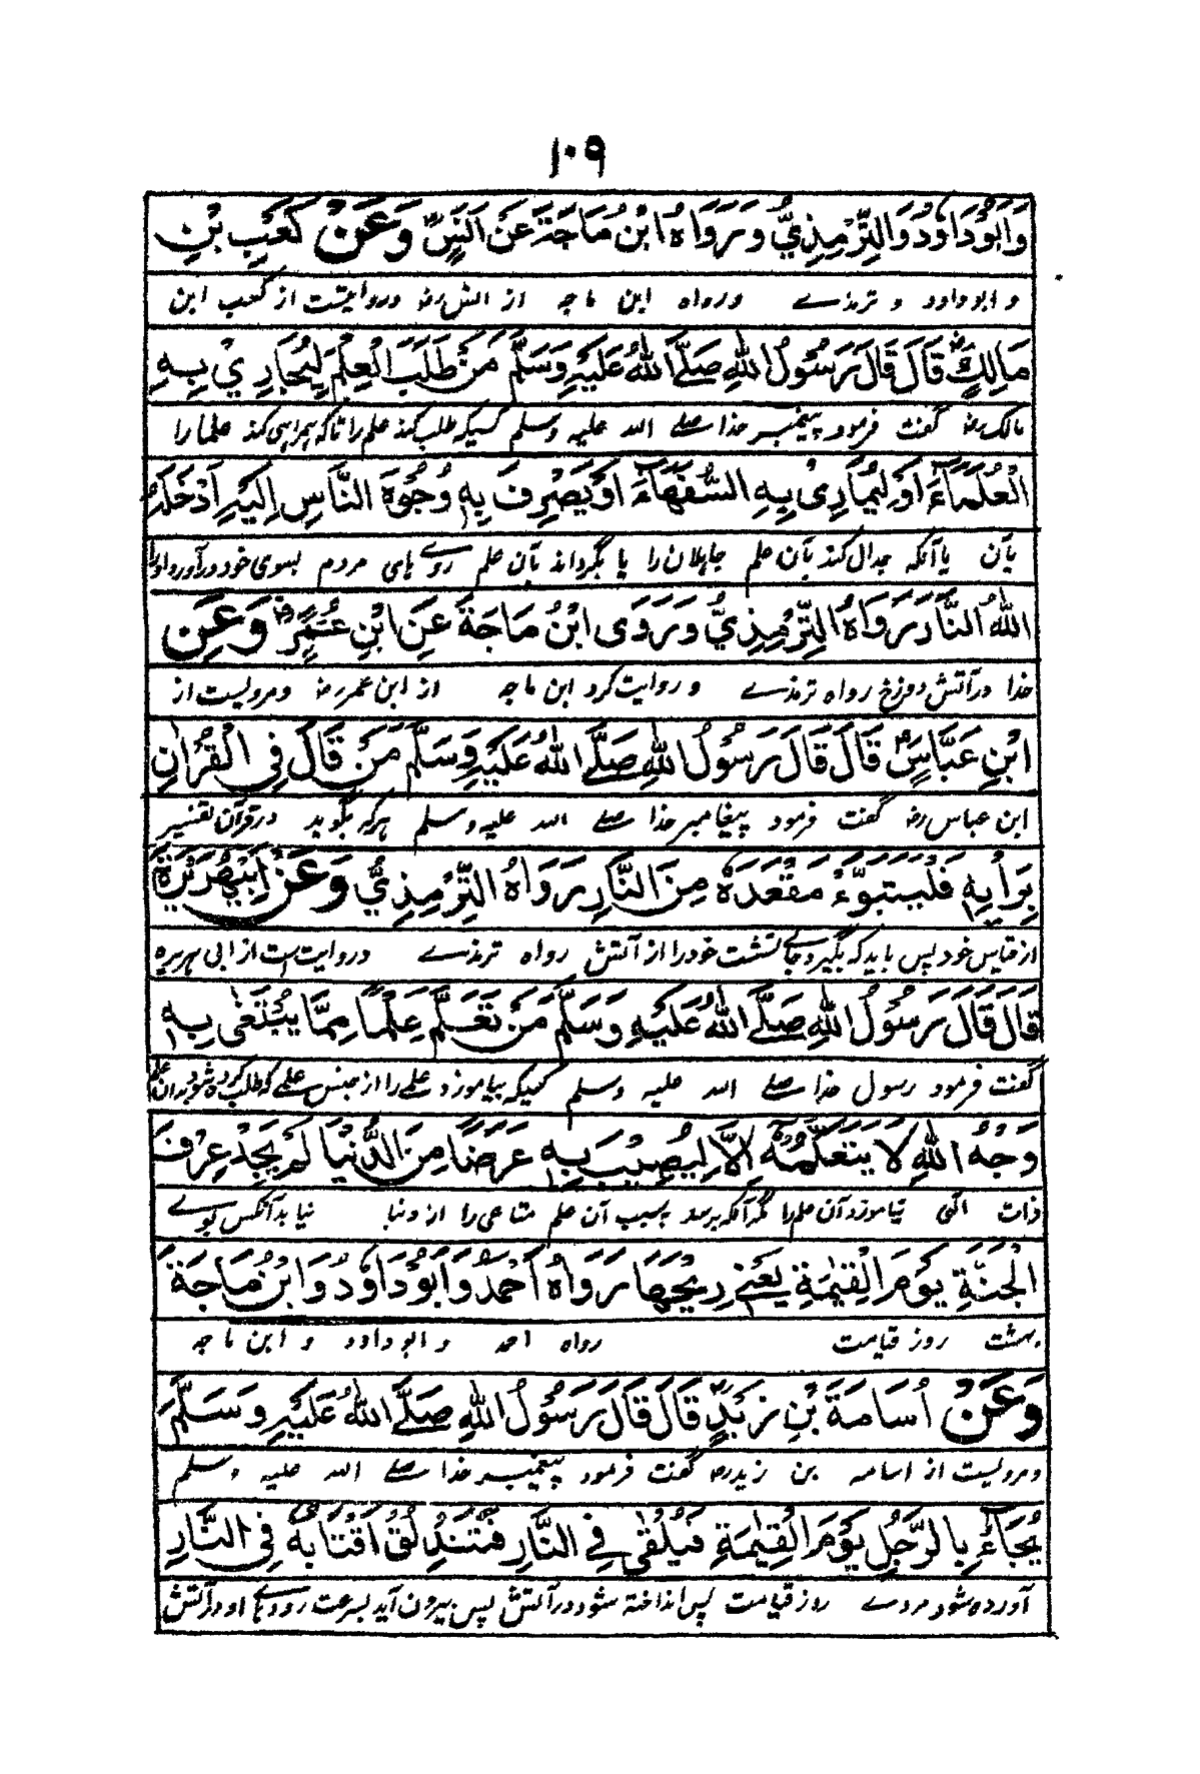 ١٠٩
وَاَبُوْدَاوٗدَ وَالتِّرْمِذِيُّ وَرَوَاهُ ابْنُ مَاجَةَ عَنْ اَنَسٍؓ وَعَنْ كَعْبِ بْنِ
و ابوداود و ترمذے ورواه ابن ماجه از انس رضہ وروایتست از کعب ابن
مَالِكٍؓ قَالَ قَالَ رَسُوْلُ اللهِ صَلَّے اللهُ عَلَيْهِ وَسَلَّمَ مَنْ طَلَبَ الْعِلْمَ لِيُجَارِيْ بِهِ
مالک رضہ گفت فرمود پیغمبر خدا صلے الله علیه وسلم کسیکه طلب کند علم را تا که همراهی کند علما را
الْعُلَمَاءَ اَوْ لِيُمَارِيْ بِهِ السُّفَهَاءَ اَوْ يَصْرِفَ بِهٖ وُجُوْهَ النَّاسِ اِلَيْهِ اَدْخَلَهُ
بآن یا آنکه جدال کند بآن علم جاہلان را یا بگرداند بآن علم روے ہای مردم بسوی خود درآورد اورا
اللهُ النَّارَ رَوَاهُ التِّرْمِذِيُّ وَرَوَى ابْنُ مَاجَةَ عَنِ ابْنِ عُمَرَؓ وَعَنِ
خدا در آتش دوزخ رواه ترمذے و روایت کرد ابن ماجه از ابن عمر رضہ ومرویست از
ابْنِ عَبَّاسٍؓ قَالَ قَالَ رَسُوْلُ اللهِ صَلَّے اللهُ عَلَيْهِ وَسَلَّمَ مَنْ قَالَ فِي الْقُرْاٰنِ
ابن عباس رضہ گفت فرمود پیغامبر خدا صلے الله علیه وسلم ہرکه بگوید در قرآن تفسیر
بِرَأْيِهٖ فَلْيَتَبَوَّءْ مَقْعَدَهٗ مِنَ النَّارِ رَوَاهُ التِّرْمِذِيُّ وَعَنْ اَبِيْهُرَيْرَةَ
از قیاس خود پس باید که بگیرد جاے نشست خود را از آتش رواه ترمذے و روایت است از ابی ہریره
قَالَ قَالَ رَسُوْلُ اللهِ صَلَّے اللهُ عَلَيْهِ وَسَلَّمَ مَنْ تَعَلَّمَ عِلْمًا مِمَّا يُبْتَغٰى بِهٖ
گفت فرمود رسول خدا صلے الله علیه وسلم کسیکه بیاموزد علمے را از جنس علمے که طلب کرده شود بدان علم
وَجْهُ اللهِ لَا يَتَعَلَّمُهٗ اِلَّا لِيُصِيْبَ بِهٖ عَرَضًا مِنَ الدُّنْيَا لَمْ يَجِدْ عَرْفَ
ذات الٰہی نیاموزد آن علم را مگر آنکه برسد بسبب آن علم متاعی را از دنیا نیابد آنکس بوے
الْجَنَّةِ يَوْمَ الْقِيٰمَةِ يَعْنِے رِيْحَهَا رَوَاهُ اَحْمَدُ وَاَبُوْدَاوٗدَ وَابْنُ مَاجَةَ
بہشت روز قیامت رواه احمد و ابوداود و ابن ماجه
وَعَنْ اُسَامَةَ بْنِ زَيْدٍؓ قَالَ قَالَ رَسُوْلُ اللهِ صَلَّے اللهُ عَلَيْهِ وَسَلَّمَ
ومرویست از اسامه بن زید رضہ گفت فرمود پیغمبر خدا صلے الله علیه وسلم
يُجَاءُ بِالرَّجُلِ يَوْمَ الْقِيٰمَةِ فَيُلْقٰى فِے النَّارِ فَتَنْدَلِقُ اَقْتَابُهٗ فِي النَّارِ
آورده شود مردے روز قیامت پس انداخته شود در آتش پس بیرون آید بسرعت رودہاے او در آتش